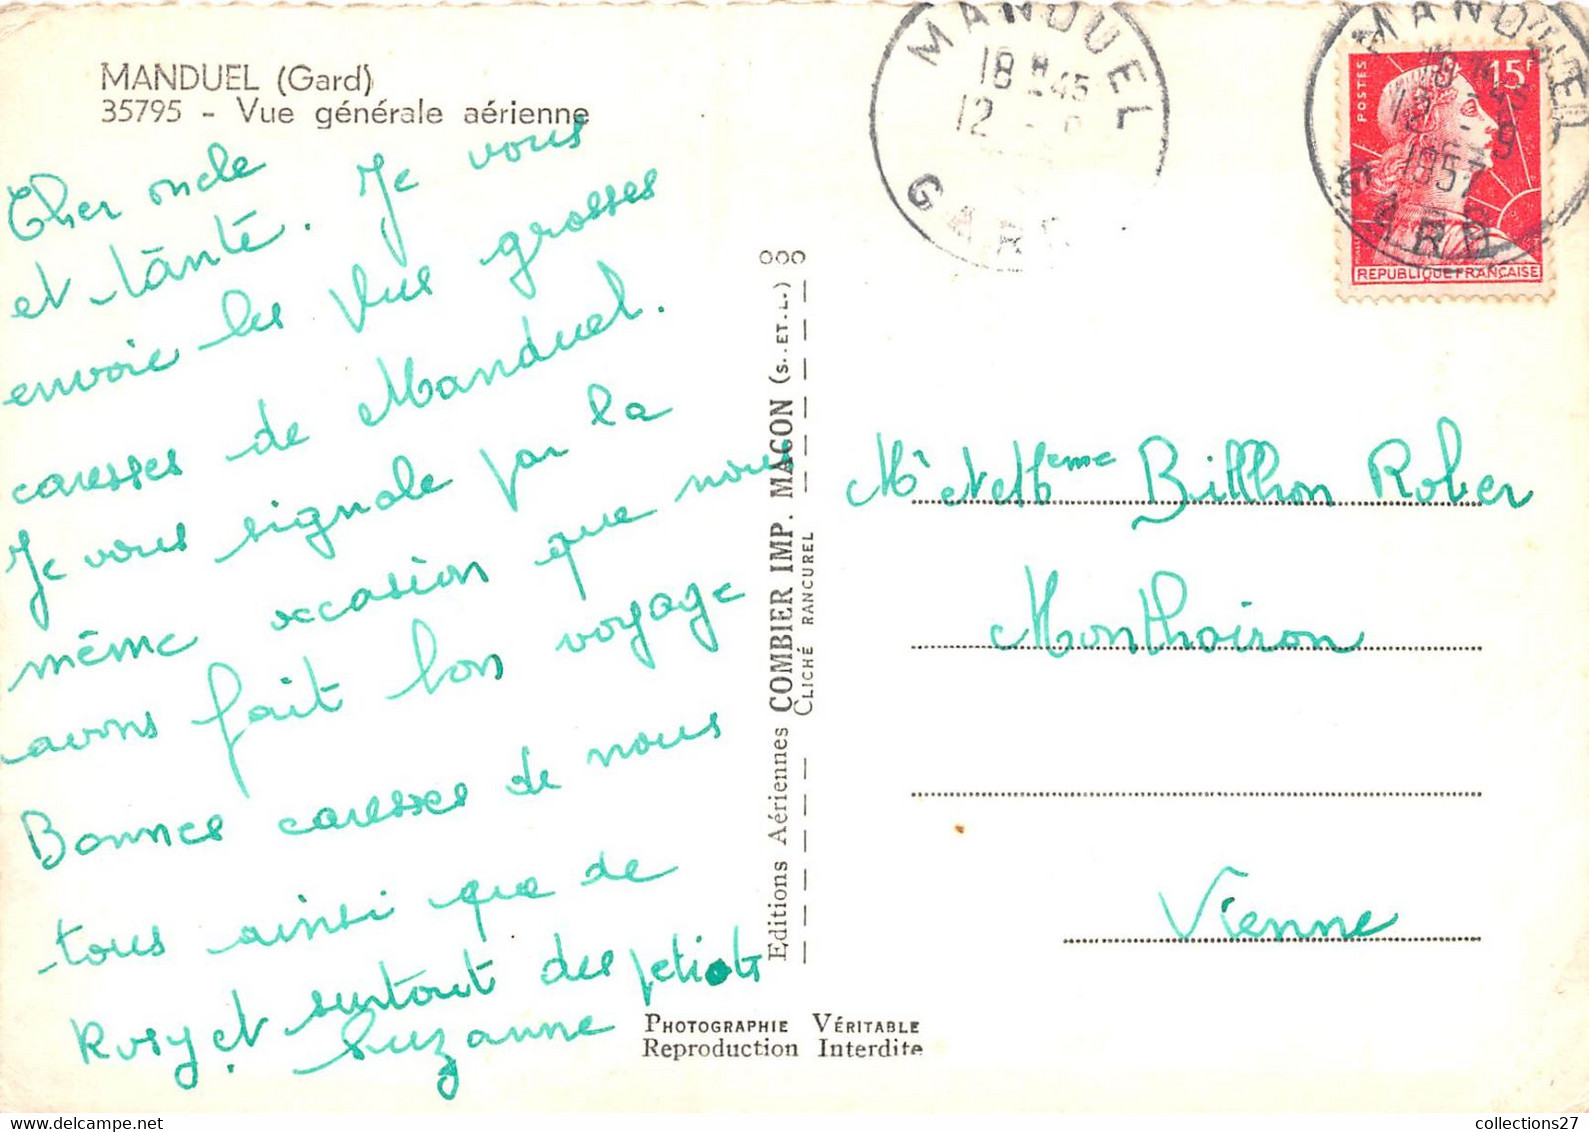 MANDUEL (Gard)
35795 - Vue générale aérienne
Cher oncle
et tānté. Je vous
envoie les plus grosses
caresses de Manduel.
Je vous signale par la
même occasion que nous
avons fait bon voyage
Bonnes caresses de nous
tous ainsi que de
Rosy et surtout des petiots
Suzanne
MANDUEL
18 H 45
12
GARD
MANDUEL
18 H 45
12 - 9
1957
GARD
POSTES
15F
REPUBLIQUE FRANÇAISE
Editions Aériennes COMBIER IMP. MACON (S.-ET-L.)
CLICHÉ RANCUREL
Mr et Mme Billhon Rober
Monthoiron
Vienne
PHOTOGRAPHIE VÉRITABLE
Reproduction Interdite
collections27